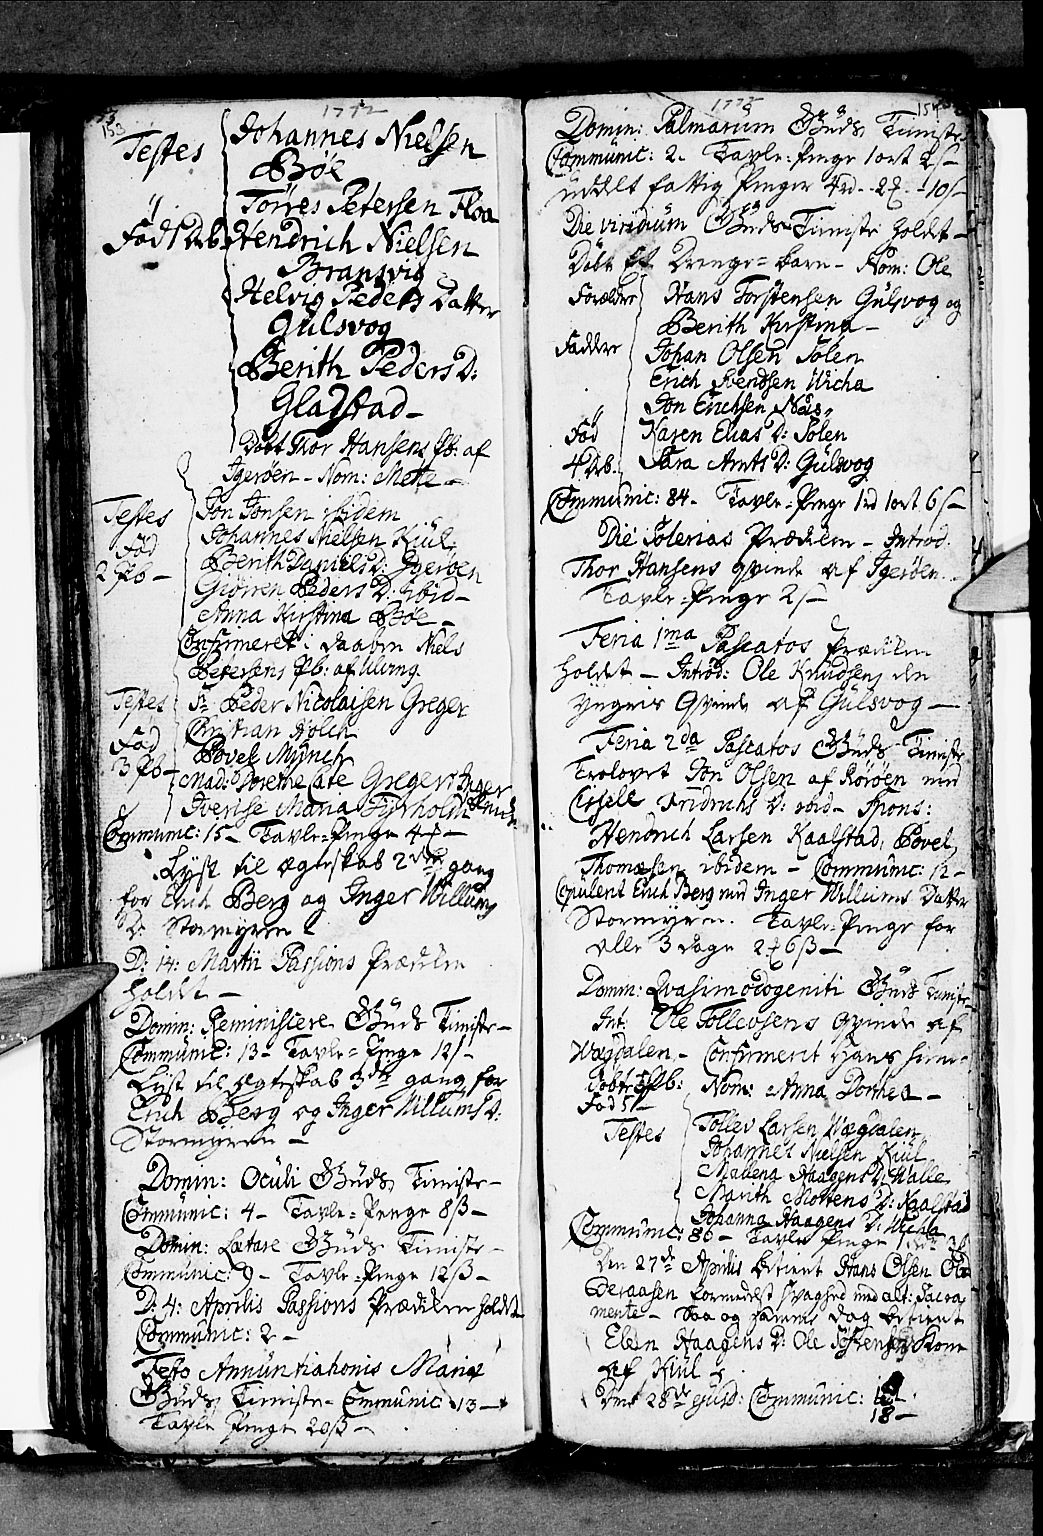 153
1772
Testes
Johannes Nielsen
Böe
Törres Petersen Floa
Född 1 Dec:
Hendrich Nielsen
Bransvig
Helvig Peders Datter
Gulsvog
Berith Peders D:
Gladstad
Döbt Thor Hansens Pb: af
Igerøen - Nom: Mette -
Testes
Jon Jonsen ibidem
Johannes Nielsen Kiul
Fød
Berith Daniels D: Igerøen
2 Pb -
Giøren Peders D: ibid -
Anna Kirstina Bøe -
Confirmeret: Niels
Petersens Pb: af
Testes
Sr Peder Nicolaisen Greger
Christian Holch
Fød
Povel Münch
3 Pb -
Mad: Dorethe Cate Greger
Maria
Communic: 15 - Tavle-Penge 4
Lyst til Ægteskab 2den gang
for Erich Berg og Inger Willums
D: Stormyren
D: 14: Martii Passions Prædiken
holdet -
Domin: Reminiscere Guds Tieniste -
Communic: 13 - Tavle-Penge 12
Lyst til Ægteskab 3die gang for
Erich Berg og Inger Willums D:
Stormyren -
Domin: Oculi Guds Tieniste -
Communic: 4 - Tavle-Penge 8 ß -
Domin: Lætare Guds Tieniste -
Communic: 9 - Tavle-Penge 12 ß -
D: 4: Aprilis Passions Prædiken holdet
Communic: 2 -
Festo Annuntiationis Mariæ
Guds Tieniste - Communic: 13 -
Tavle Penge 20 ß -
154
Domin: Palmarum Guds Tieniste
Communic: 2. Tavle-Penge 1 ort 2
uddelt fattig Penger
Die viridium Guds Tieniste holdet -
Døbt Et Drenge-barn - Nom: Ole
Forældre
Hans Torstensen Gulsvog og
Berith Kirstina -
Faddere
Johan Olsen Solen
Erich Svendsen Wicha
Jon Erichsen Næs
Fød
Karen Elias D: Solen
4 Dec:
Sara Arnts D: Gulsvog
Communic: 84 - Tavle-Penge 1 rd 1 ort 6
Die Prædiken - Introd:
Thor Hansens Qvinde af Igerøen -
Tavle-Penge 2
Feria 1ma Pascatos Prædiken
holdet - Introd: Ole Knudsens den
yngeris Qvinde af Gulsvog -
Feria 2da Pascatos Guds-Tieniste
Trolovet Jon Olsen af Rörøen med
Cisselle D: ibid - Spons:
Hendrich Larsen Kaalstad, Povel
Thomæsen ibidem - Communic: 12 -
Copulerit Erich Berg med Inger Willums Datter
Stormyren. Tavle-Penge for
alle 3 dage 2 6 ß -
Domin: Qvasimodogeniti Guds Tieniste
Int: Ole Tollevsens Qvinde af
Wægdalen - Confirmerit Hans
døbte Pb: Nom: Anna Dorthea -
Fød 5
Testes
Tollev Larsen Wægdalen
Johannes Nielsen Kiul
Malena Haagens D: Walle
Marith Mortens D: Kaalstad
Johanna Haagens D: Wicha
Communic: 86 - Tavle Penge
Den 27de Aprilis betient Hans Olsen
formedelst svaghed med alt: Sacra
mente - Saa og samme dag betient
Elen Haagens D: Ole Kone
af Kiul -
Den 28de ejusd: Communic:
18 -